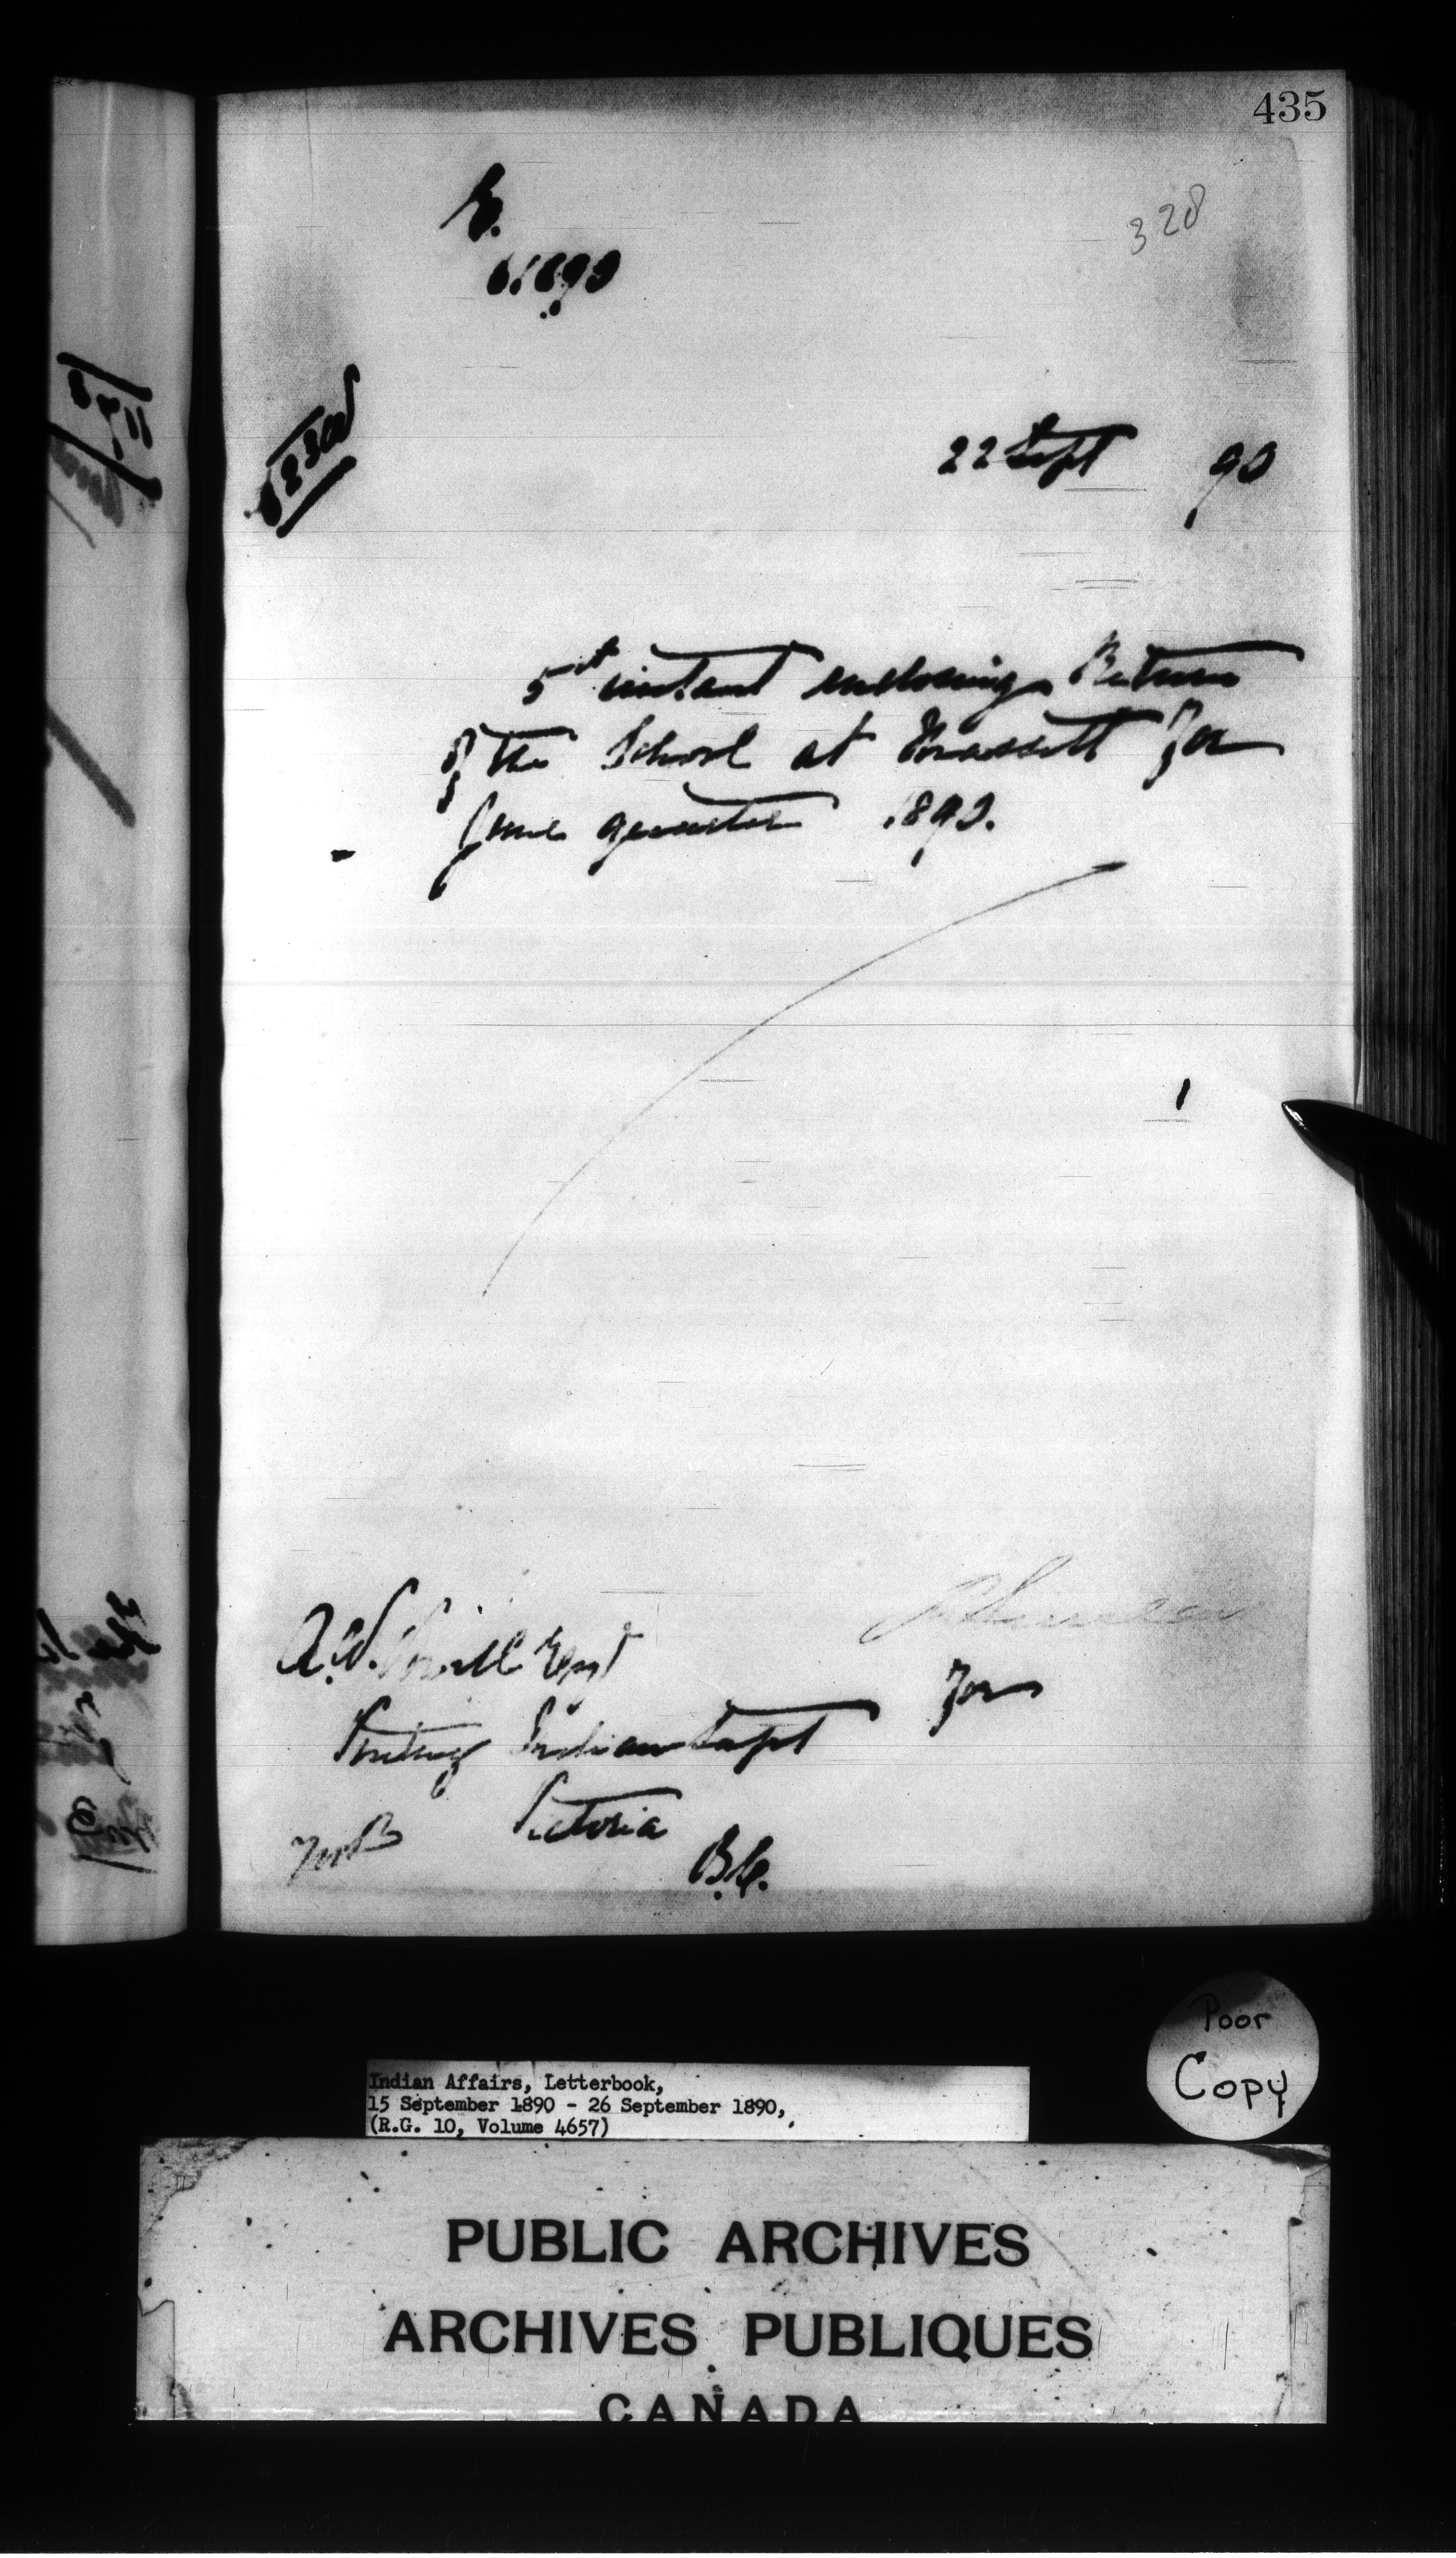 435
328
61893
22 Sept 90
5th instant enclosing Return
of the School at Massett for
June quarter 1890.
A.W. Vowell Esq
Visiting Indian Supt
for
Victoria
B.C.
Poor
Copy
Indian Affairs, Letterbook,
15 September 1890 - 26 September 1890,
(R.G. 10, Volume 4657)
PUBLIC ARCHIVES
ARCHIVES PUBLIQUES
CANADA